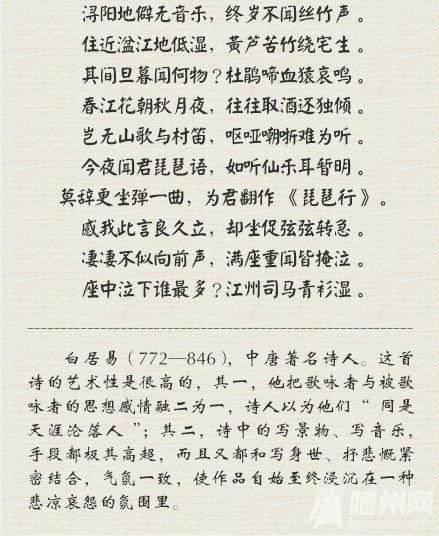 浔阳地僻无音乐，终岁不闻丝竹声。
住近湓江地低湿，黄芦苦竹绕宅生。
其间旦暮闻何物？杜鹃啼血猿哀鸣。
春江花朝秋月夜，往往取酒还独倾。
岂无山歌与村笛，呕哑嘲哳难为听。
今夜闻君琵琶语，如听仙乐耳暂明。
莫辞更坐弹一曲，为君翻作《琵琶行》。
感我此言良久立，却坐促弦弦转急。
凄凄不似向前声，满座重闻皆掩泣。
座中泣下谁最多？江州司马青衫湿。
白居易（772—846），中唐著名诗人。这首
诗的艺术性是很高的，其一，他把歌咏者与被歌
咏者的思想感情融二为一，诗人以为他们“同是
天涯沦落人”；其二，诗中的写景物、写音乐，
手段都极其高超，而且又都和写身世、抒悲慨紧
密结合，气氛一致，使作品自始至终浸沉在一种
悲凉哀怨的氛围里。
随州网